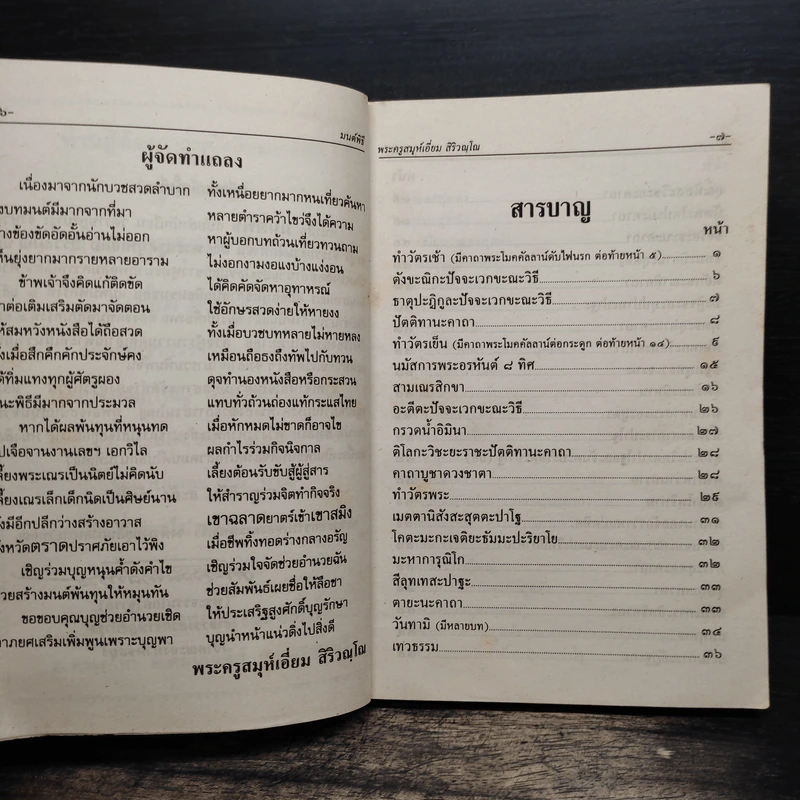 ๖-
มนต์พิธี
ผู้จัดทำแถลง
เนื่องมาจากนักบวชสวดลำบาก ทั้งเหนื่อยยากมากหนเที่ยวค้นหา
บทมนต์มีมากจากที่มา หลายตำราคว้าไขว่จึงได้ความ
างข้องขัดอัดอั้นอ่านไม่ออก หาผู้บอกบทถ้วนเที่ยวทวนถาม
ห็นยุ่งยากมากรายหลายอาราม ไม่งอกงามงอแงบ้างแง่งอน
ข้าพเจ้าจึงคิดแก้ติดขัด ได้คิดคัดจัดหาอุทาหรณ์
าต่อเติมเสริมตัดมาจัดตอน ใช้อักษรสวดง่ายให้หายงง
ห้สมหวังหนังสือได้ถือสวด ทั้งเมื่อบวชบทหลายไม่หายหลง
ั้งเมื่อสึกคึกคักประจักษ์คง เหมือนถือธงถึงทัพไปกับทวน
ด้ทิ่มแทงทุกผู้ศัตรูผอง ดุจทำนองหนังสือหรือกระสวน
นะพิธีมีมากจากประมวล แทบทั่วถ้วนถ่องแท้กระแสไทย
หากได้ผลพันทุนที่หนุนทด เมื่อหักหมดไม่ขาดก็อาจไข
ปเจือจานงานเลขฯ เอกวิไล ผลกำไรร่วมกิจนิจกาล
ลี้ยงพระเณรเป็นนิตย์ไม่คิดนับ เลี้ยงต้อนรับขับสู้ผู้สู่สาร
ลี้ยงเณรเล็กเด็กนิดเป็นศิษย์นาน ให้สำราญร่วมจิตทำกิจจริง
ังมีอีกปลีกว่างสร้างอาวาส เขาฉลาดยาตร์เข้าเขาสมิง
ังหวัดตราดปราศภัยเอาไว้พิง เมื่อชีพทิ้งทอดร่างกลางอรัญ
เชิญร่วมบุญหนุนค้ำดังคำไข เชิญร่วมใจจัดช่วยอำนวยฉัน
วยสร้างมนต์พ้นทุนให้หมุนทัน ช่วยสัมพันธ์เผยชื่อให้ลือชา
ขอขอบคุณบุญช่วยอำนวยเชิด ให้ประเสริฐสูงศักดิ์บุญรักษา
าภยศเสริมเพิ่มพูนเพราะบุญพา บุญนำหน้าแน่วดิ่งไปสิ่งดี
พระครูสมุห์เอี่ยม สิริวณฺโณ
พระครูสมุห์เอี่ยม สิริวณฺโณ
-๗-
สารบาญ
หน้า
ทำวัตรเช้า (มีคาถาพระโมคคัลลาน์ดับไฟนรก ต่อท้ายหน้า ๕) ๑
ตังขะณิกะปัจจะเวกขะณะวิธี ๖
ธาตุปะฏิกูละปัจจะเวกขะณะวิธี ๗
ปัตติทานะคาถา ๘
ทำวัตรเย็น (มีคาถาพระโมคคัลลาน์ต่อกระดูก ต่อท้ายหน้า ๑๔) ๙
นมัสการพระอรหันต์ ๘ ทิศ ๑๕
สามเณรสิกขา ๑๖
อะตีตะปัจจะเวกขะณะวิธี ๒๖
กรวดน้ำอิมินา ๒๗
ติโลกะวิชะยะราชะปัตติทานะคาถา ๒๘
คาถาบูชาดวงชาตา ๒๘
ทำวัตรพระ ๒๙
เมตตานิสังสะสุตตะปาโฐ ๓๑
โคตะมะกะเจติยะธัมมะปะริยาโย ๓๒
มะหาการุณิโก ๓๒
สีลุทเทสะปาฐะ ๓๓
ตายะนะคาถา ๓๓
วันทามิ (มีหลายบท) ๓๔
เทวธรรม ๓๖